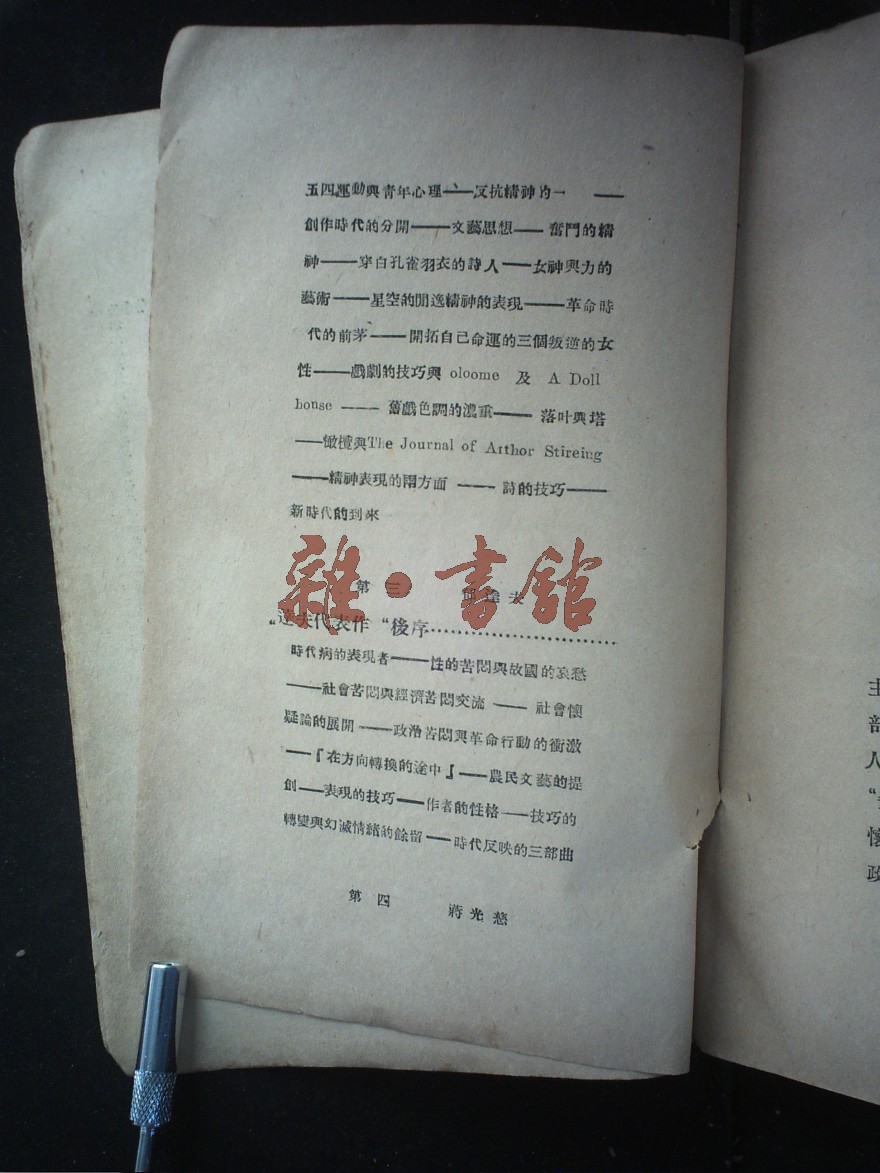 五四運動與青年心理——反抗精神的一 ——
創作時代的分開——文藝思想——奮鬥的精
神——穿白孔雀羽衣的詩人——女神與力的
藝術——星空的閒逸精神的表現——革命時
代的前茅——開拓自己命運的三個叛逆的女
性——戲劇的技巧與 oloome 及 A Doll
house——舊戲色調的濃重——落叶與塔
——橄欖與The Journal of Arthor Stireing
——精神表現的兩方面——詩的技巧——
新時代的到來
雜·書館
第三 郁達夫
“達夫代表作“後序…………………
時代病的表現者——性的苦悶與故國的哀愁
——社會苦悶與經濟苦悶交流——社會懷
疑論的展開——政治苦悶與革命行動的衝激
——『在方向轉換的途中』——農民文藝的提
創——表現的技巧——作者的性格——技巧的
轉變與幻滅情緒的餘留——時代反映的三部曲
第四 蔣光慈
主
部
人
懷
政